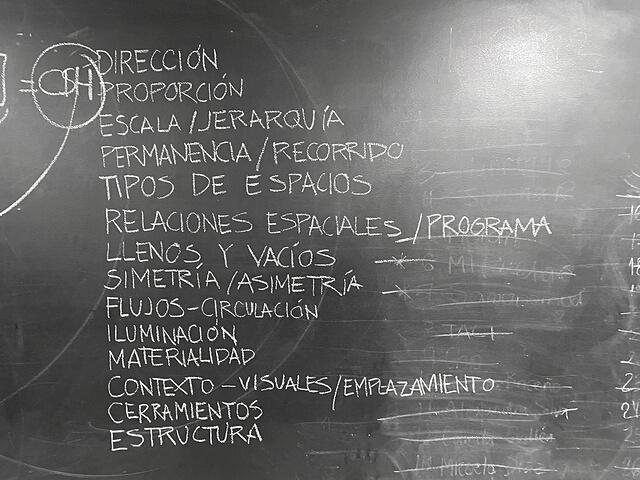 DIRECCIÓN
= OSH PROPORCIÓN
ESCALA/JERARQUÍA
PERMANENCIA/RECORRIDO
TIPOS DE ESPACIOS
RELACIONES ESPACIALES/PROGRAMA
LLENOS Y VACÍOS
SIMETRÍA/ASIMETRÍA
FLUJOS-CIRCULACIÓN
ILUMINACIÓN
MATERIALIDAD
CONTEXTO-VISUALES/EMPLAZAMIENTO
CERRAMIENTOS
ESTRUCTURA